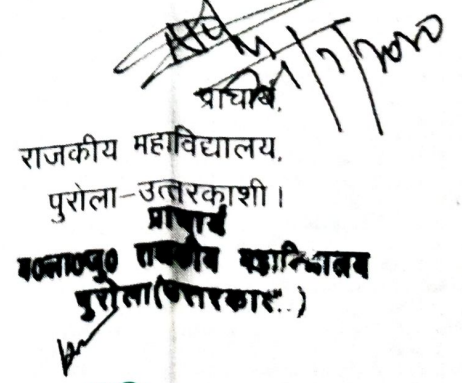 प्राचार्य,
राजकीय महाविद्यालय,
पुरोला-उत्तरकाशी।
प्राचार्य
ब0ला0जु0 राजकीय महाविद्यालय
पुरोला(उत्तरकाशी)